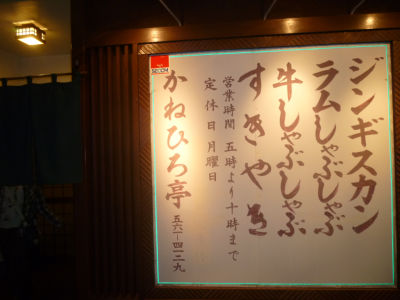 ジンギスカン
ラムしゃぶしゃぶ
牛しゃぶしゃぶ
すきやき
営業時間 五時より十時まで
定休日 月曜日
かねひろ亭 五六一四一二九